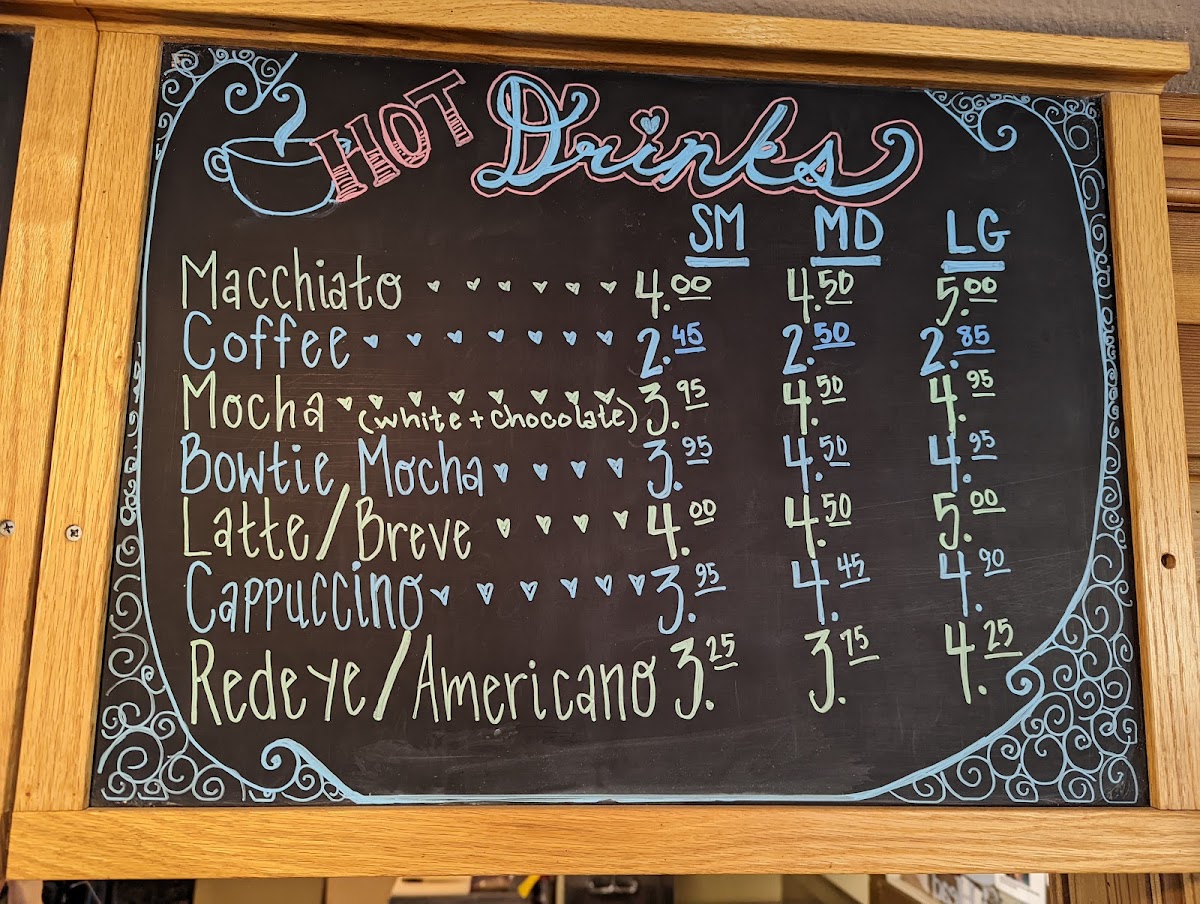 HOT Drinks
SM MD LG
Macchiato 4.00 4.50 5.00
Coffee 2.45 2.50 2.85
Mocha (white + chocolate) 3.95 4.50 4.95
Bowtie Mocha 3.95 4.50 4.95
Latte/Breve 4.00 4.50 5.00
Cappuccino 3.95 4.45 4.90
Redeye/Americano 3.25 3.75 4.25